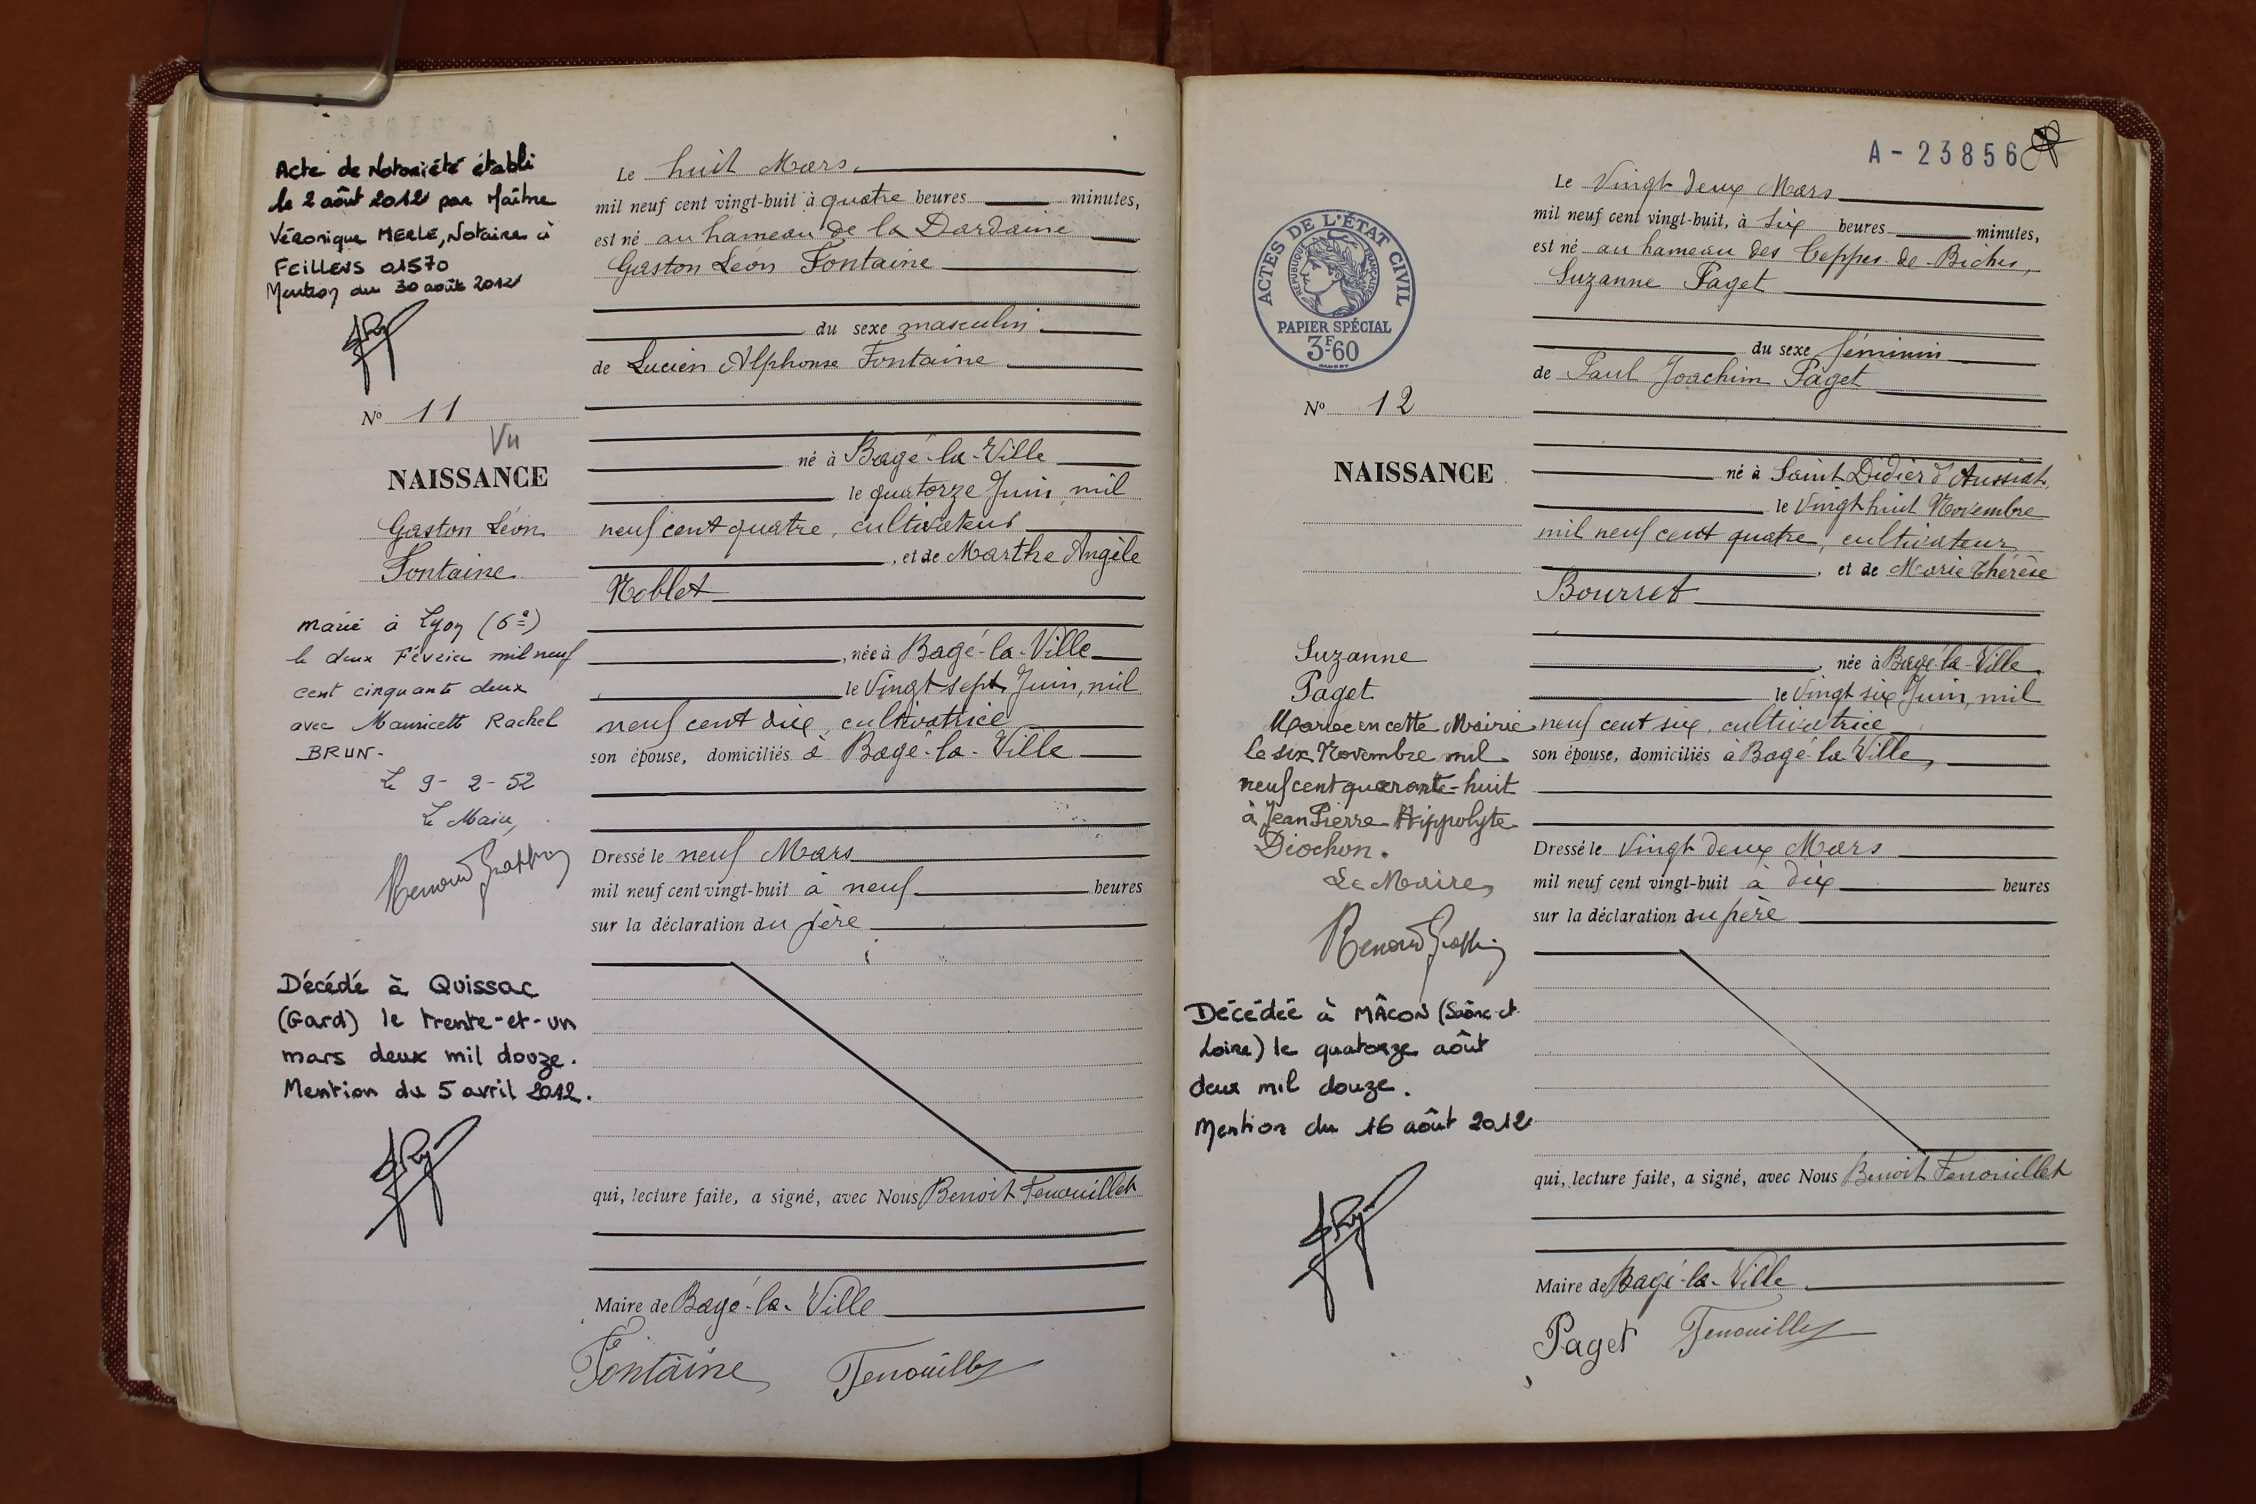 Acte de Notoriété établi
le 2 août 2012 par Maître
Véronique MERLE, Notaire à
Feillens 01570
Mention du 30 août 2012
N° 11
Vu
NAISSANCE
Gaston Léon
Fontaine
marié à Lyon (6e)
le deux Février mil neuf
cent cinquante deux
avec Mauricette Rachel
BRUN-
Le 9-2-52
Le Maire,
Décédé à Quissac
(Gard) le trente-et-un
mars deux mil douze.
Mention du 5 avril 2012.
Le huit Mars
mil neuf cent vingt-huit à quatre heures minutes,
est né au hameau de la Dardaine
Gaston Leon Fontaine
du sexe masculin
de Lucien Alphonse Fontaine
né à Bagé-la-Ville
le quatorze Juin mil
neuf cent quatre, cultivateur
, et de Marthe Angèle
Noblet
, née à Bagé-la-Ville
le Vingt sept Juin, mil
neuf cent dix, cultivatrice
son épouse, domiciliés à Bagé-la-Ville
Dressé le neuf Mars
mil neuf cent vingt-huit à neuf heures
sur la déclaration du père
qui, lecture faite, a signé, avec Nous Benoit Fenouillet
Maire de Bagé-la-Ville
Fontaine Fenouillet
A-23856
ACTES DE L'ÉTAT CIVIL
RÉPUBLIQUE FRANÇAISE
PAPIER SPÉCIAL
3F60
N° 12
NAISSANCE
Suzanne
Paget
Mariée en cette Mairie
le six Novembre mil
neuf cent quarante-huit
à Jean Pierre Hippolyte
Diochon.
Le Maire,
Décédée à MÂCON (Saône-et-
Loire) le quatorze août
deux mil douze.
Mention du 16 août 2012
Le Vingt deux Mars
mil neuf cent vingt-huit, à six heures minutes,
est né au hameau des Teppes-de-Biches,
Suzanne Paget
du sexe féminin
de Paul Joachim Paget
né à Saint Didier d'Aussiat,
le Vingt huit Novembre
mil neuf cent quatre, cultivateur
, et de Marie Thérèse
Bourret
, née à Bagé-la-Ville
le Vingt six Juin, mil
neuf cent six, cultivatrice
son épouse, domiciliés à Bagé-la-Ville,
Dressé le Vingt deux Mars
mil neuf cent vingt-huit à dix heures
sur la déclaration du père
qui, lecture faite, a signé, avec Nous Benoit Fenouillet
Maire de Bagé-la-Ville
Paget Fenouillet